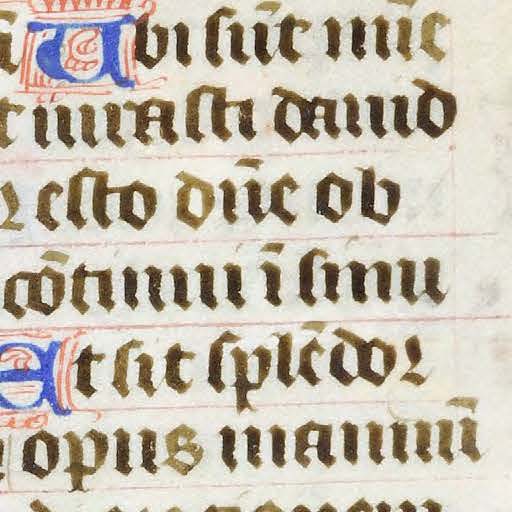 Ubi sūt mīe
iurasti dauid
esto dn̄e ob
cōtinuu ī sinu
at sit splēdor
opus manuū